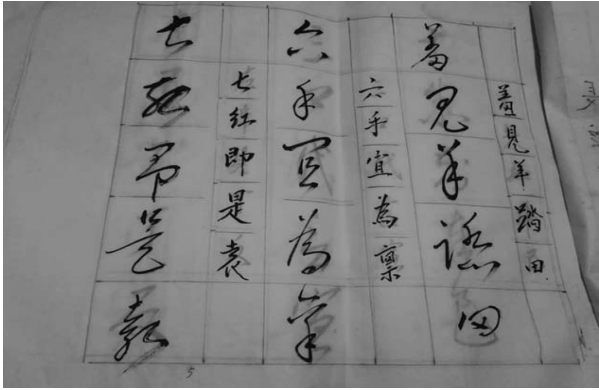 羞見羊踏田
羞見羊踏田
六手宜為稟
六手宜為稟
七紅即是袁
七紅即是袁
5